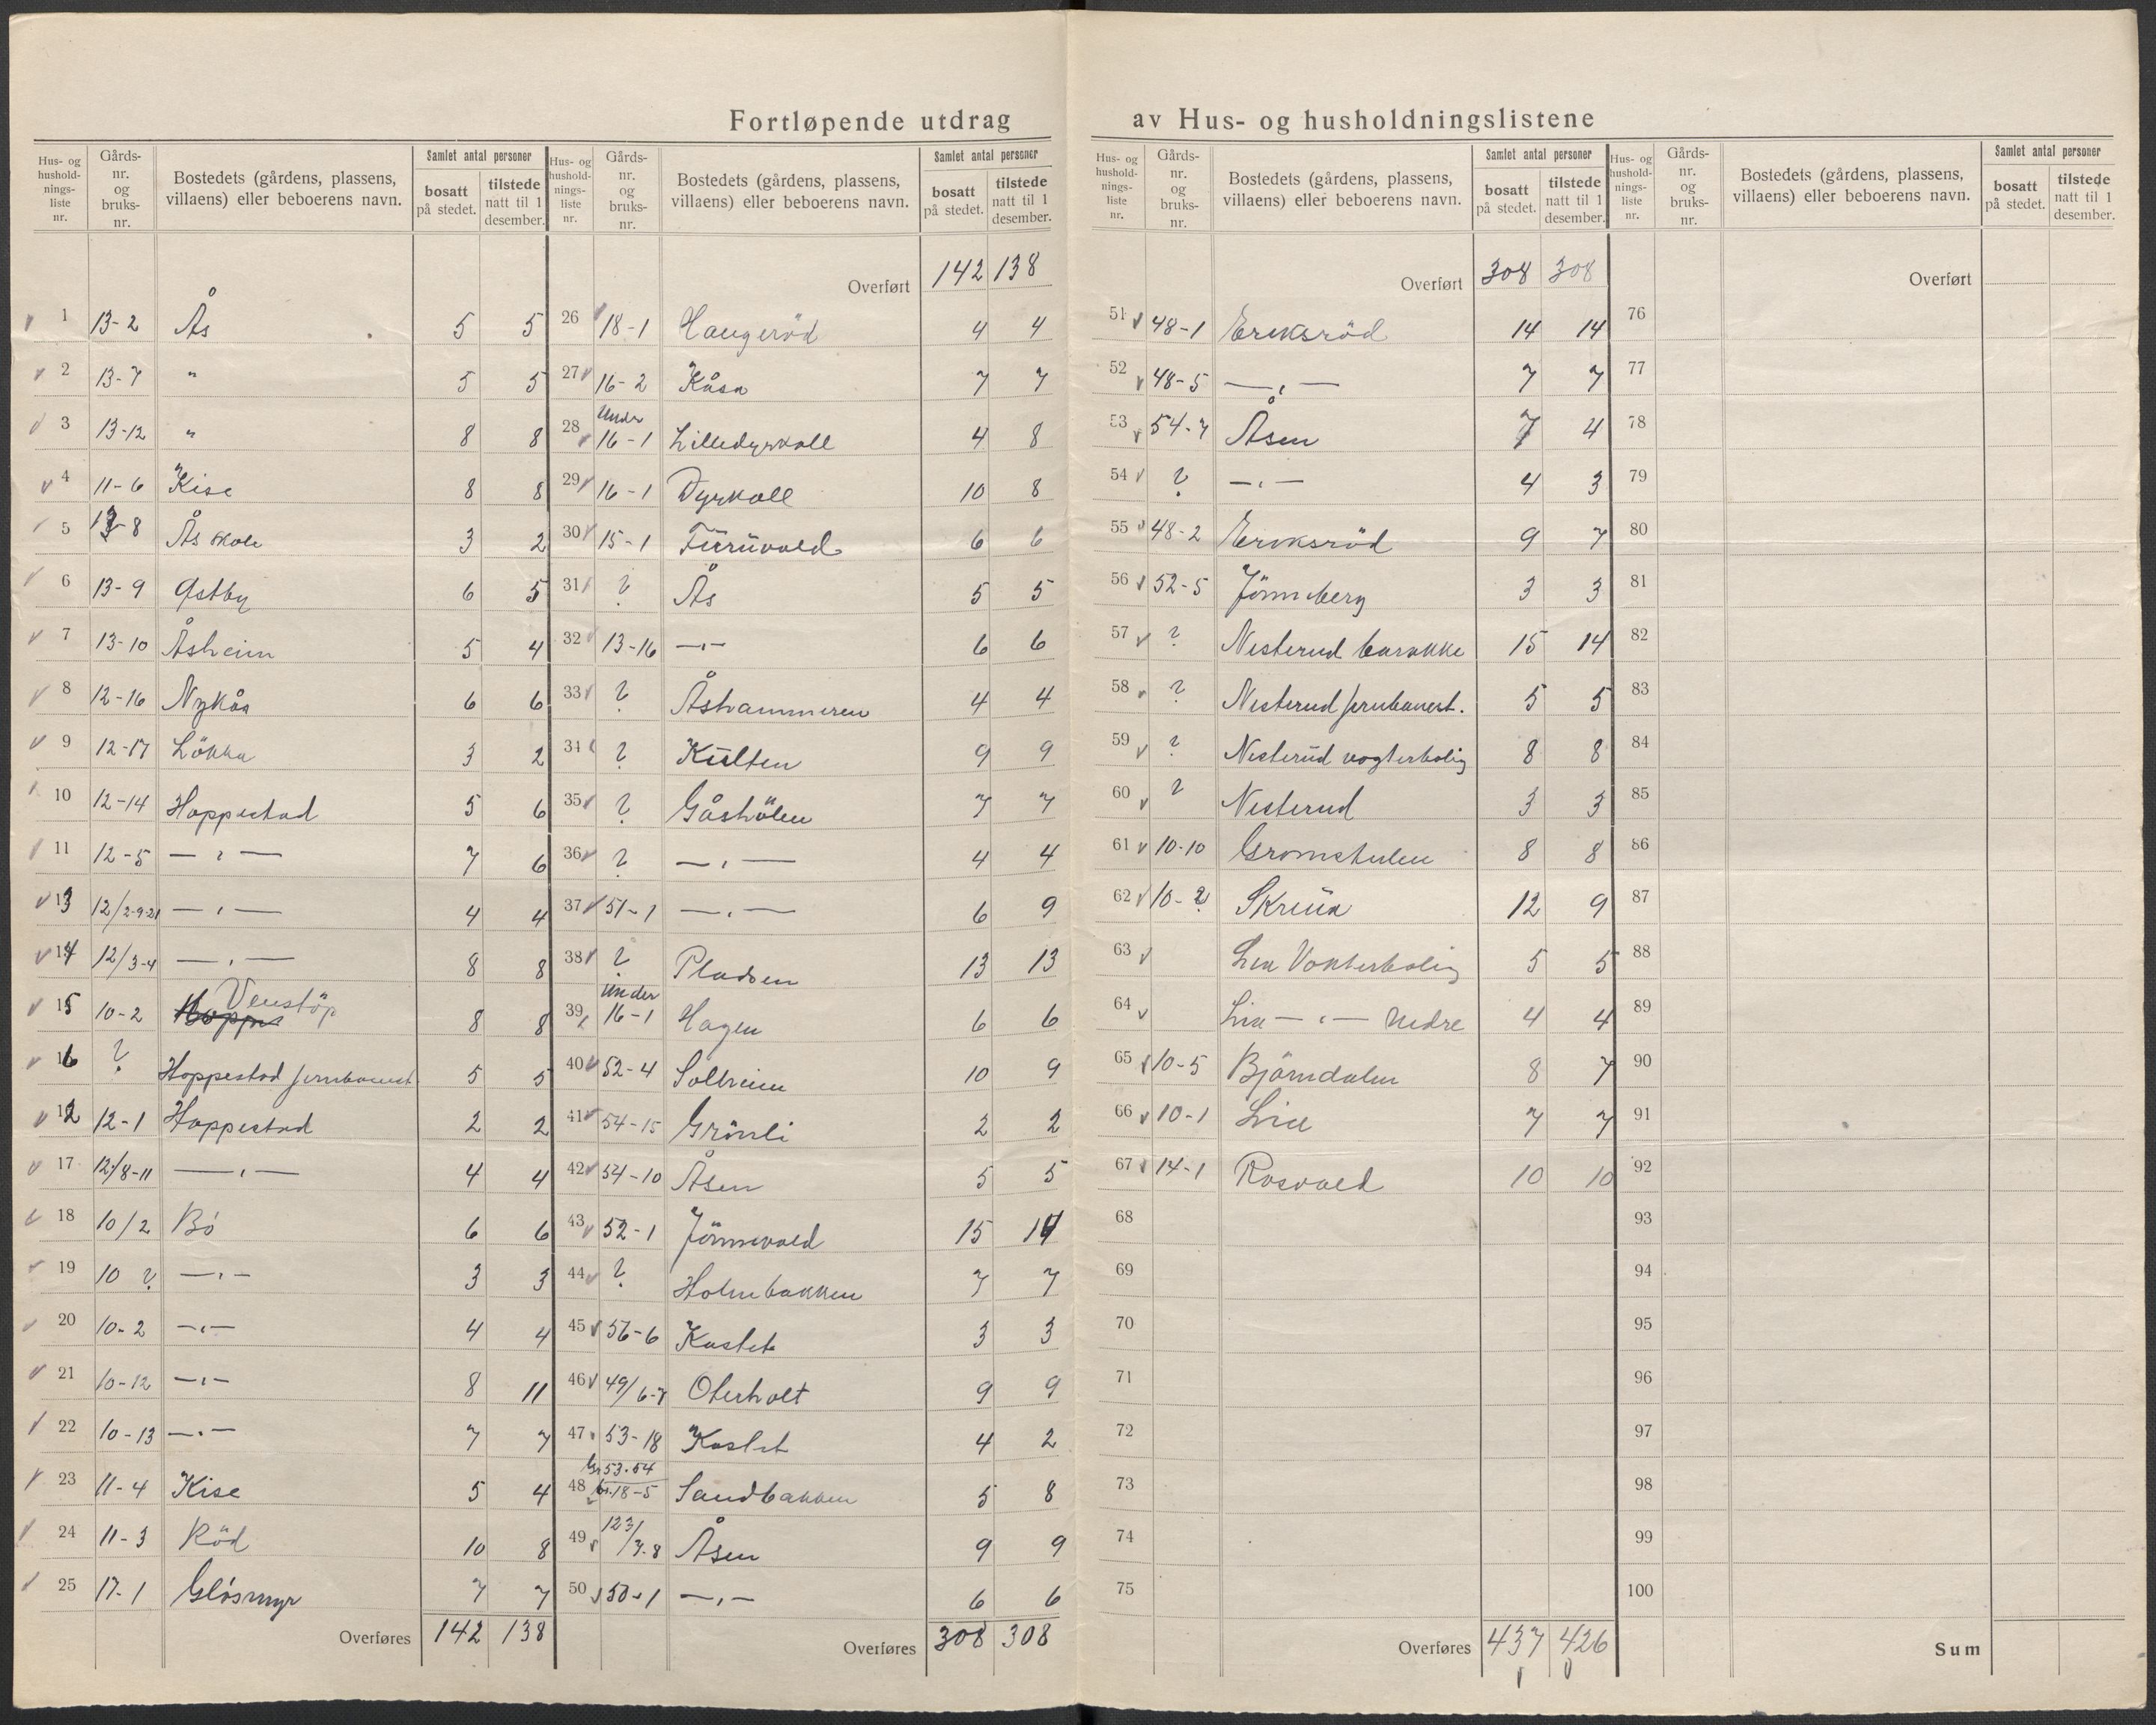 Fortløpende utdrag av Hus- og husholdningslistene
Hus- og husholdnings-liste nr. | Gårds-nr. og bruks-nr. | Bostedets (gårdens, plassens, villaens) eller beboerens navn. | Samlet antal personer | bosatt på stedet. | tilstede natt til 1 desember.
1 13-2 Ås 5 5
2 13-7 " 5 5
3 13-12 " 8 8
4 11-6 Kise 8 8
5 13-8 Ås skole 3 2
6 13-9 Østby 6 5
7 13-10 Åsheim 5 4
8 12-16 Nykås 6 6
9 12-17 Lökka 3 2
10 12-14 Hoppestad 5 6
11 12-5 — " — 7 6
13 12/2-9-21 — " — 4 4
14 12/3-4 — " — 8 8
15 10-2 Venstöp 8 8
16 ? Hoppestad jernbanest. 5 5
12 12-1 Hoppestad 2 2
17 12/8-11 — " — 4 4
18 10/2 Bö 6 6
19 10 ? — " — 3 3
20 10-2 — " — 4 4
21 10-12 — " — 8 11
22 10-13 — " — 7 7
23 11-4 Kise 5 4
24 11-3 Röd 10 8
25 17-1 Glösmyr 7 7
Overføres 142 138
Hus- og husholdnings-liste nr. | Gårds-nr. og bruks-nr. | Bostedets (gårdens, plassens, villaens) eller beboerens navn. | Samlet antal personer | bosatt på stedet. | tilstede natt til 1 desember.
Overført 142 138
26 18-1 Haugeröd 4 4
27 16-2 Kåsa 7 7
28 Under 16-1 Lilledyrkoll 4 8
29 16-1 Dyrkoll 10 8
30 15-1 Furuvald 6 6
31 ? Ås 5 5
32 13-16 — " — 6 6
33 ? Åshammeren 4 4
34 ? Kulten 9 9
35 ? Gåshölen 7 7
36 ? — " — 4 4
37 51-1 — " — 6 9
38 ? Pladsen 13 13
39 Under 16-1 Hagen 6 6
40 52-4 Solheim 10 9
41 54-15 Grönli 2 2
42 54-10 Åsen 5 5
43 52-1 Jönnevald 15 14
44 ? Holmbakken 7 7
45 56-6 Kastet 3 3
46 49/6-7 Oterholt 9 9
47 53-18 Kastet 4 2
48 Gr 53.54 Br. 18-5 Sandbakken 5 8
49 123/3-8 Åsen 9 9
50 50-1 — " — 6 6
Overføres 308 308
Hus- og husholdnings-liste nr. | Gårds-nr. og bruks-nr. | Bostedets (gårdens, plassens, villaens) eller beboerens navn. | Samlet antal personer | bosatt på stedet. | tilstede natt til 1 desember.
Overført 308 308
51 48-1 Eriksröd 14 14
52 48-5 — " — 7 7
53 54-7 Åsen 7 4
54 ? — " — 4 3
55 48-2 Eriksröd 9 7
56 52-5 Jönneberg 3 3
57 ? Nisterud barakke 15 14
58 ? Nisterud jernbanest. 5 5
59 ? Nisterud vogterbolig 8 8
60 ? Nisterud 3 3
61 10-10 Gromstulen 8 8
62 10-2 Skreua 12 9
63 Lia Vokterbolig 5 5
64 Lia — " — nedre 4 4
65 10-5 Björndalen 8 7
66 10-1 Lia 7 7
67 14-1 Rosvald 10 10
68
69
70
71
72
73
74
75
Overføres 437 426
Hus- og husholdnings-liste nr. | Gårds-nr. og bruks-nr. | Bostedets (gårdens, plassens, villaens) eller beboerens navn. | Samlet antal personer | bosatt på stedet. | tilstede natt til 1 desember.
Overført
76
77
78
79
80
81
82
83
84
85
86
87
88
89
90
91
92
93
94
95
96
97
98
99
100
Sum